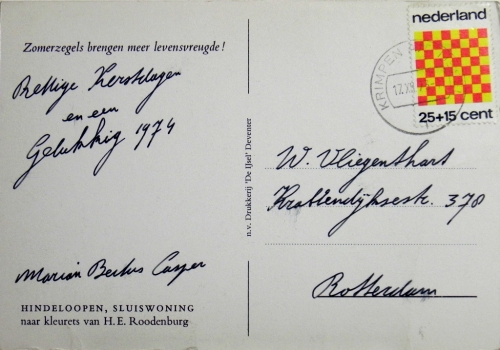 Zomerzegels brengen meer levensvreugde!
Prettige Kerstdagen
en een
Gelukkig 1974
Marian Bertus Casper
HINDELOOPEN, SLUISWONING
naar kleurets van H.E. Roodenburg
n.v. Drukkerij 'De IJsel' Deventer
nederland
25+15 cent
KRIMPEN
W. Vliegenthart
Krabbendijksestr. 378
Rotterdam